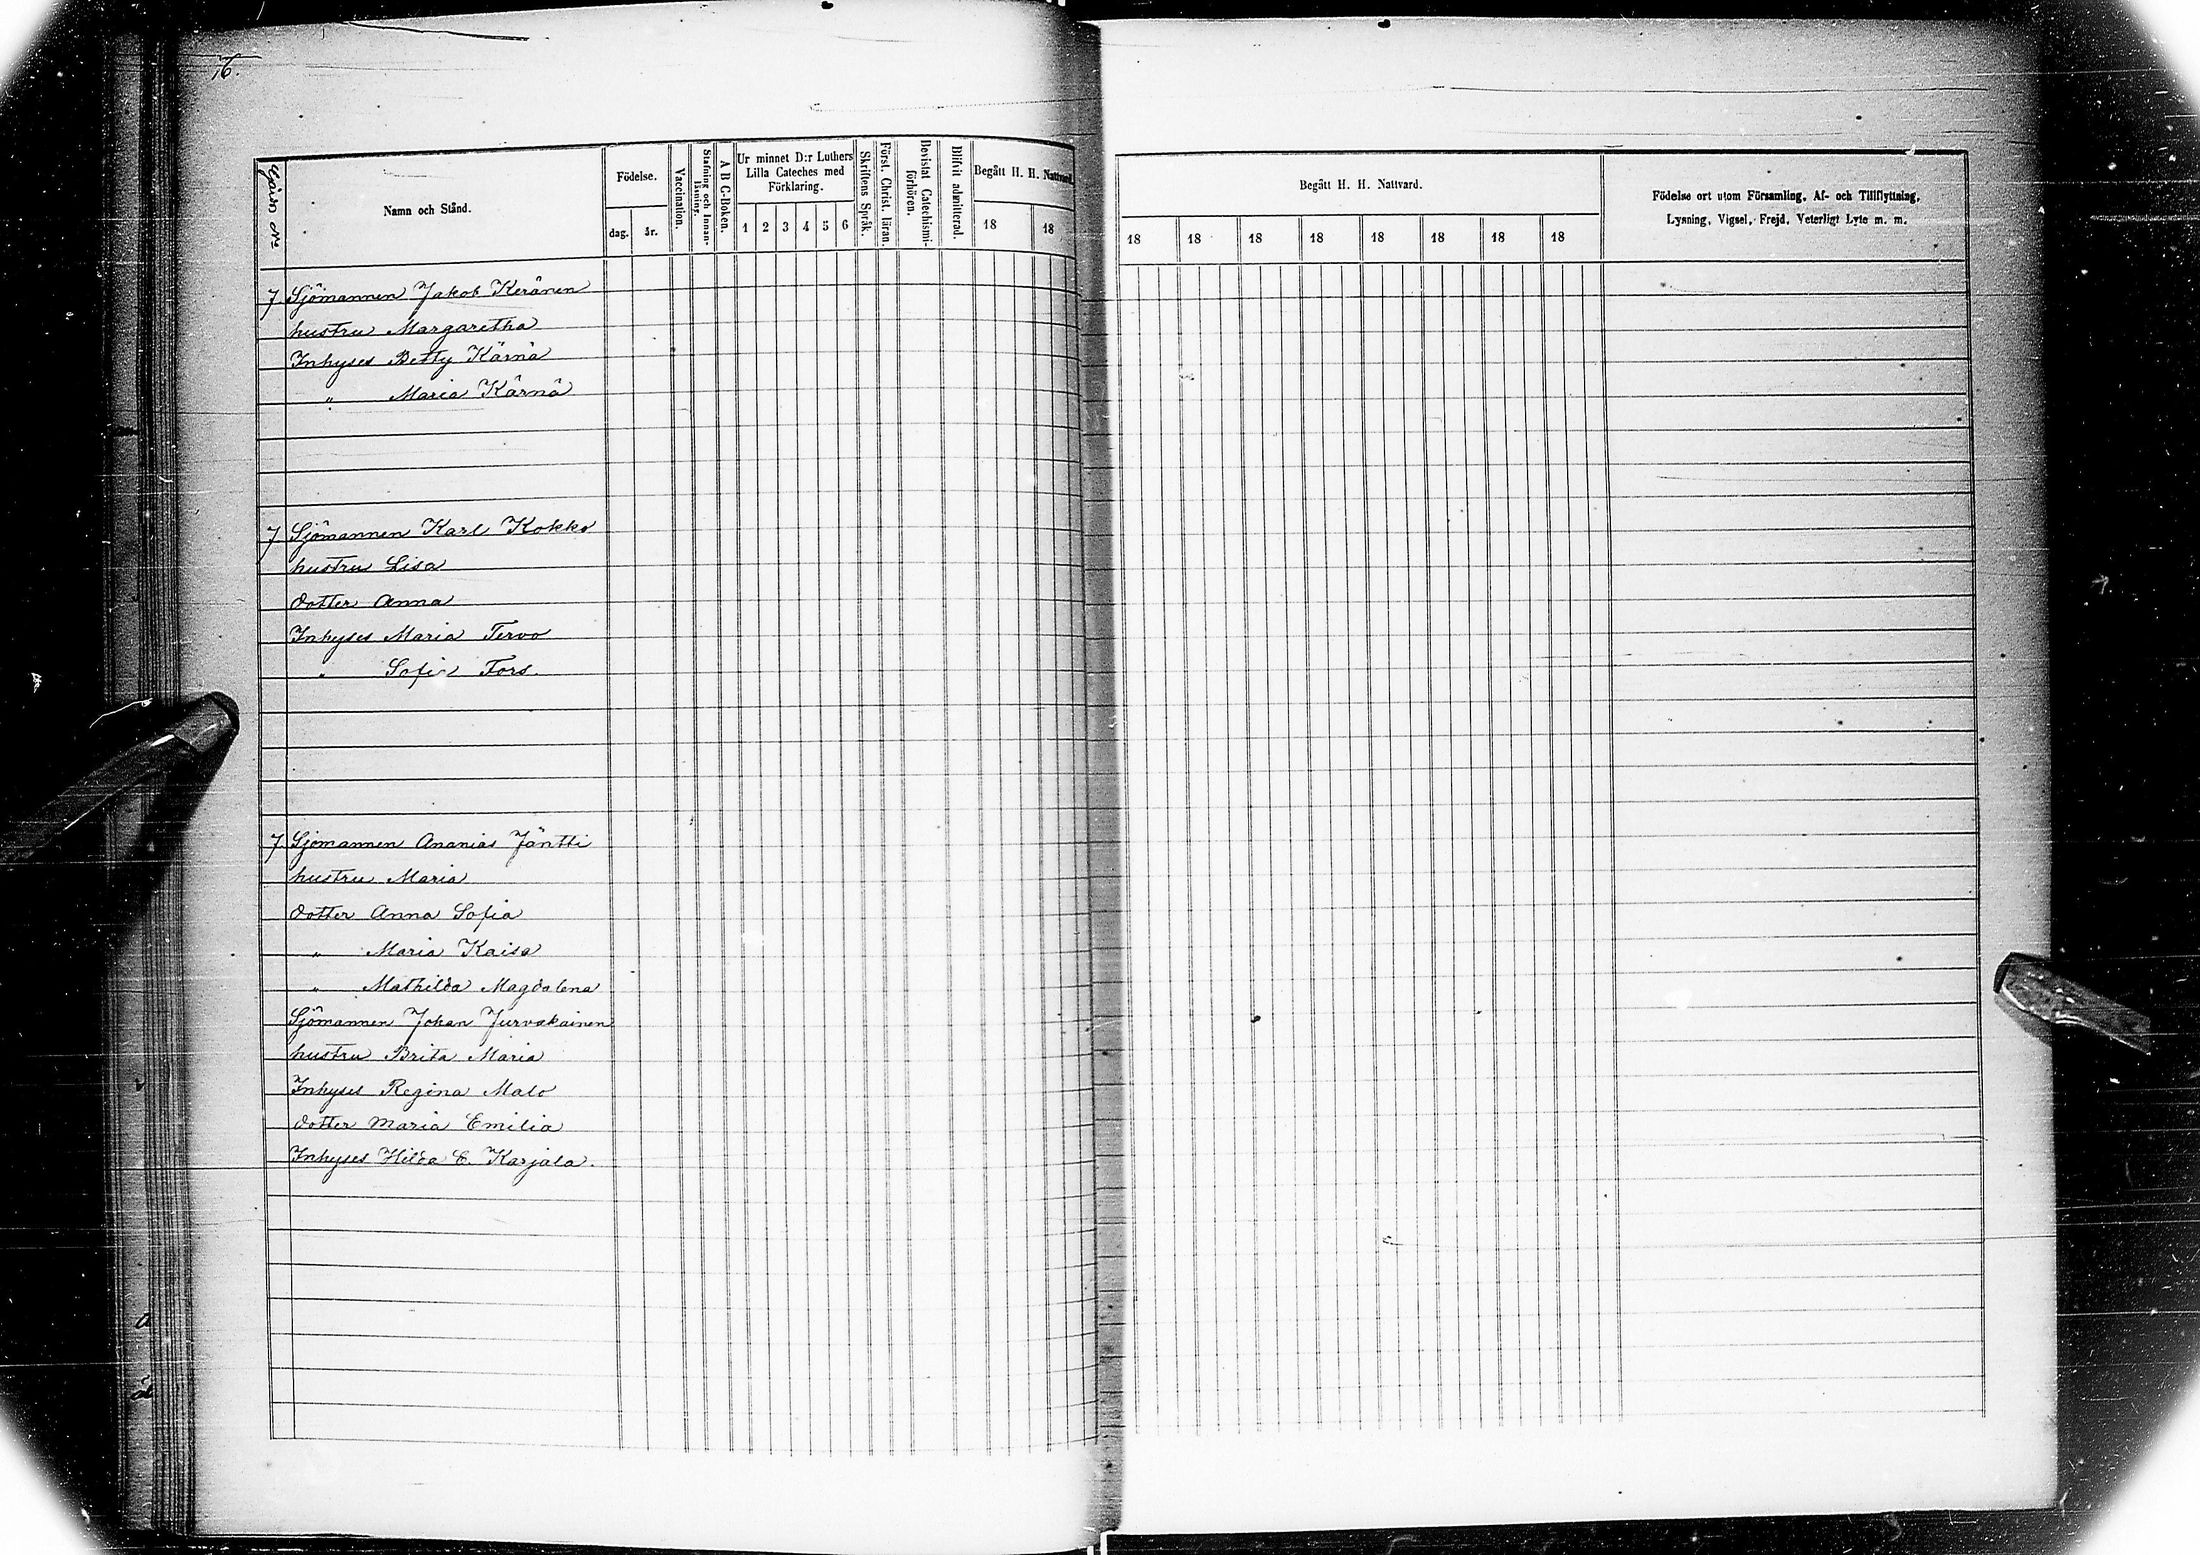 16.
Gård No
Namn och Stånd.
Födelse.
dag.
år.
Vaccination.
Stafning och Innan-
läsning.
A B C-Boken.
Ur minnet D:r Luthers
Lilla Cateches med
Förklaring.
1 2 3 4 5 6
Skriftens Språk.
Först. Christ. läran.
Bevistat Catechismi-
förhören.
Blifvit admitterad.
Begått H. H. Nattvard.
18 18
Begått H. H. Nattvard.
18 18 18 18 18 18 18 18
Födelse ort utom Församling, Af- och Tillflyttning,
Lysning, Vigsel, Frejd, Veterligt Lyte m. m.
7 Sjömannen Jakob Keränen
hustru Margaretha
Inhyses Betty Kärnä
" Maria Kärnä
7 Sjömannen Karl Kokko
hustru Lisa
dotter Anna
Inhyses Maria Tervo
" Sofia Fors.
7 Sjömannen Ananias Jäntti
hustru Maria
dotter Anna Sofia
" Maria Kaisa
" Mathilda Magdalena
Sjömannen Johan Jurvakainen
hustru Brita Maria
Inhyses Regina Malo
dotter Maria Emilia
Inhyses Hilda C. Karjala.